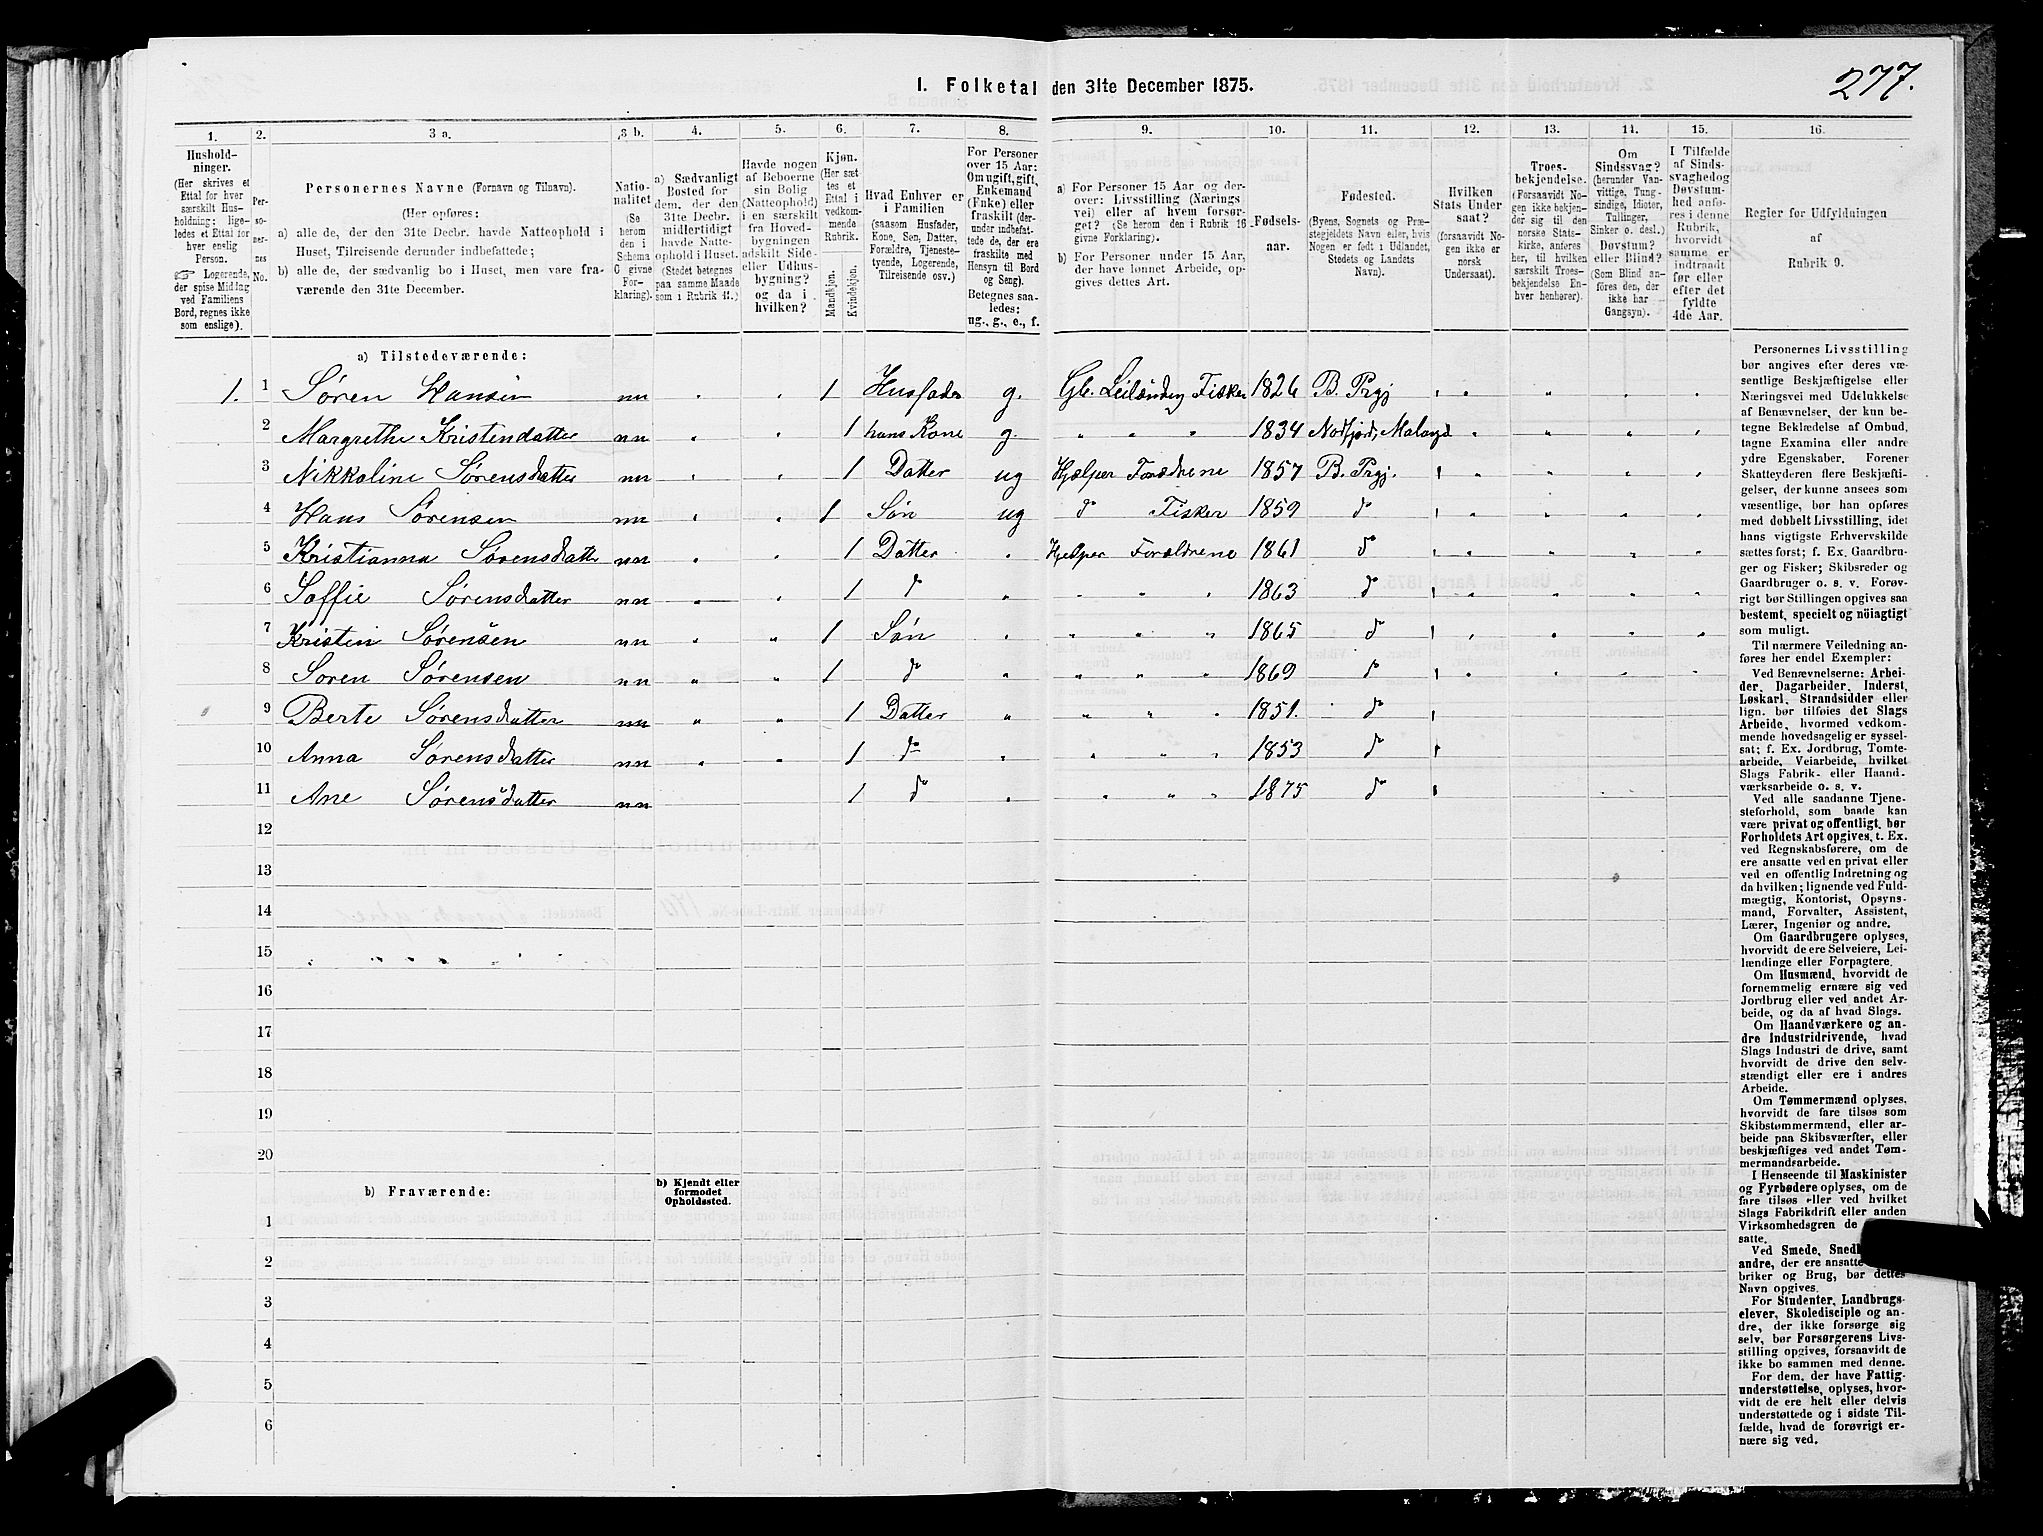 277.
1. Folketal den 31te December 1875.
1.
Hushold-
ninger.
(Her skrives et
Ettal for hver
særskilt Hus-
holdning; lige-
ledes et Ettal for
hver enslig
Person.
☞ Logerende,
der spise Middag
ved Familiens
Bord, regnes ikke
som enslige).
2.
Per-
so-
ner-
nes
No.
3 a.
Personernes Navne (Fornavn og Tilnavn).
(Her opføres:
a) alle de, der den 31te Decbr. havde Natteophold i
Huset, Tilreisende derunder indbefattede;
b) alle de, der sædvanlig bo i Huset, men vare fra-
værende den 31te December.
3 b.
Natio-
nalitet
(Se
herom
den i
Schema
G givne
For-
klaring).
4.
a) Sædvanligt
Bosted for
dem, der den
31te Decbr.
midlertidigt
havde Natte-
ophold i Huset.
(Stedet betegnes
paa samme Maade
som i Rubrik 11.)
5.
Havde nogen
af Beboerne
sin Bolig
(Natteophold)
i en særskilt
fra Hoved-
bygningen
adskilt Side-
eller Udhus-
bygning?
og da i
hvilken?
6.
Kjøn.
(Her sæt-
tes et
Ettal i
vedkom-
mende
Rubrik.
Mandkjøn.
Kvindekjøn.
7.
Hvad Enhver er
i Familien
(saasom Husfader,
Kone, Søn, Datter,
Forældre, Tjeneste-
tyende, Logerende,
Tilreisende osv.)
8.
For Personer
over 15 Aar:
Om ugift, gift,
Enkemand
(Enke) eller
fraskilt (der-
under indbefat-
tede de, der ere
fraskilte med
Hensyn til Bord
og Seng).
Betegnes saa-
ledes:
ug., g., e., f.
9.
a) For Personer 15 Aar og der-
over: Livsstilling (Nærings-
vei) eller af hvem forsør-
get? (Se herom den i Rubrik 16
givne Forklaring).
b) For Personer under 15 Aar,
der have lønnet Arbeide, op-
gives dettes Art.
10.
Fødsels-
aar.
11.
Fødested.
(Byens, Sognets og Præ-
stegjeldets Navn eller, hvis
Nogen er født i Udlandet,
Stedets og Landets
Navn).
12.
Hvilken
Stats Under
saat?
(forsaavidt No-
gen ikke er
norsk
Undersaat).
13.
Troes-
bekjendelse.
(Forsaavidt No-
gen ikke bekjen-
der sig til den
norske Stats-
kirke, anføres
her, til hvilken
særskilt Troes-
bekjendelse En-
hver henhører).
14.
Om
Sindssvag?
(herunder Van-
vittige, Tung-
sindige, Idioter,
Tullinger,
Sinker o. desl.)
Døvstum?
eller Blind?
(Som Blind an-
føres den, der
ikke har
Gangsyn).
15.
I Tilfælde
af Sinds-
svaghed og
Døvstum-
hed anfø-
res i denne
Rubrik,
hvorvidt
samme er
indtraadt
før eller
efter det
fyldte
4de Aar.
16.
Regler for Udfyldningen
af
Rubrik 9.
a) Tilstedeværende:
1. 1 Søren Hansen nn " " 1 Husfader g. Gb. Leilending Fisker 1826 B. Prgj
2 Margrethe Kristendatter nn " " 1 hans Kone g. " " " 1834 Nodfjord,
3 Nikkoline Sørensdatter nn " " 1 Datter ug Hjælper Forældrene 1857 B. Prgj.
4 Hans Sørensen nn " " 1 Søn ug do Fisker 1859 do
5 Kristianna Sørensdatter nn " " 1 Datter " Hjelper Forældrene 1861 do
6 Soffie Sørensdatter nn " " 1 do " " " " 1863 do
7 Kristen Sørensen nn " " 1 Søn " " " " 1865 do
8 Soren Sørensen nn " " 1 do " " " " 1869 do
9 Berte Sørensdatter nn " " 1 Datter " " " " 1851. do
10 Anna Sørensdatter nn " " 1 do " " " " 1853 do
11 Ane Sørensdatter nn 1 do " " " " 1875 do
12
13
14
15
16
17
18
19
20
b) Fraværende:
b) Kjendt eller
formodet
Opholdssted.
1
2
3
4
5
6
Personernes Livsstilling
bør angives efter deres væ-
sentlige Beskjæftigelse eller
Næringsvei med Udelukkelse
af Benævnelser, der kun be-
tegne Beklædelse af Ombud,
tagne Examina eller andre
ydre Egenskaber. Forener
Skatteyderen flere Beskjæfti-
gelser, der kunne ansees som
væsentlige, bør han opføres
med dobbelt Livsstilling, idet
hans vigtigste Erhvervskilde
sættes først; f. Ex. Gaardbru-
ger og Fisker; Skibsreder og
Gaardbruger o. s. v. Forøv-
rigt bør Stillingen opgives saa
bestemt, specielt og nöiagtigt
som muligt.
Til nærmere Veiledning an-
føres her endel Exempler:
Ved Benævnelserne: Arbei-
der, Dagarbeider, Inderst,
Løskarl, Strandsidder eller
lign. bør tilføies det Slags
Arbeide, hvormed vedkom-
mende hovedsagelig er syssel-
sat; f. Ex. Jordbrug, Tomte-
arbeide, Veiarbeide, hvilket
Slags Fabrik- eller Haand-
værksarbeide o. s. v.
Ved alle saadanne Tjene-
steforhold, som baade kan
være privat og offentligt, bør
Forholdets Art opgives, t. Ex.
ved Regnskabsførere, om de
ere ansatte ved en privat eller
ved en offentlig Indretning og
da hvilken; lignende ved Fuld-
mægtig, Kontorist, Opsyns-
mand, Forvalter, Assistent,
Lærer, Ingeniør og andre.
Om Gaardbrugere oplyses,
hvorvidt de ere Selveiere, Lei-
lændinge eller Forpagtere.
Om Husmænd, hvorvidt de
fornemmelig ernære sig ved
Jordbrug eller ved andet Ar-
beide, og da af hvad Slags.
Om Haandværkere og an-
dre Industridrivende, hvad
Slags Industri de drive, samt
hvorvidt de drive den selv-
stændigt eller ere i andres
Arbeide.
Om Tømmermænd oplyses,
hvorvidt de fare tilsøs som
Skibstømmermænd, eller ar-
beide paa Skibsværfter, eller
beskjæftiges ved andet Tøm-
mermandsarbeide.
I Henseende til Maskinister
og Fyrbødere oplyses, om de
fare tilsøs eller ved hvilket
Slags Fabrikdrift eller anden
Virksomhedsgren de
satte.
Ved Smede,
andre, der ere ansatte
briker og Brug, bør dettes
Navn opgives.
For Studenter, Landbrugs-
elever, Skoledisciple og an-
dre, der ikke forsørge sig
selv, bør Forsørgerens Livs-
stilling opgives, forsaavidt de
ikke bo sammen med denne.
For dem, der have Fattig-
understøttelse, oplyses, hvor-
vidt de ere helt eller delvis
understøttede og i sidste Til-
fælde, hvad de forøvrigt er-
nære sig ved.